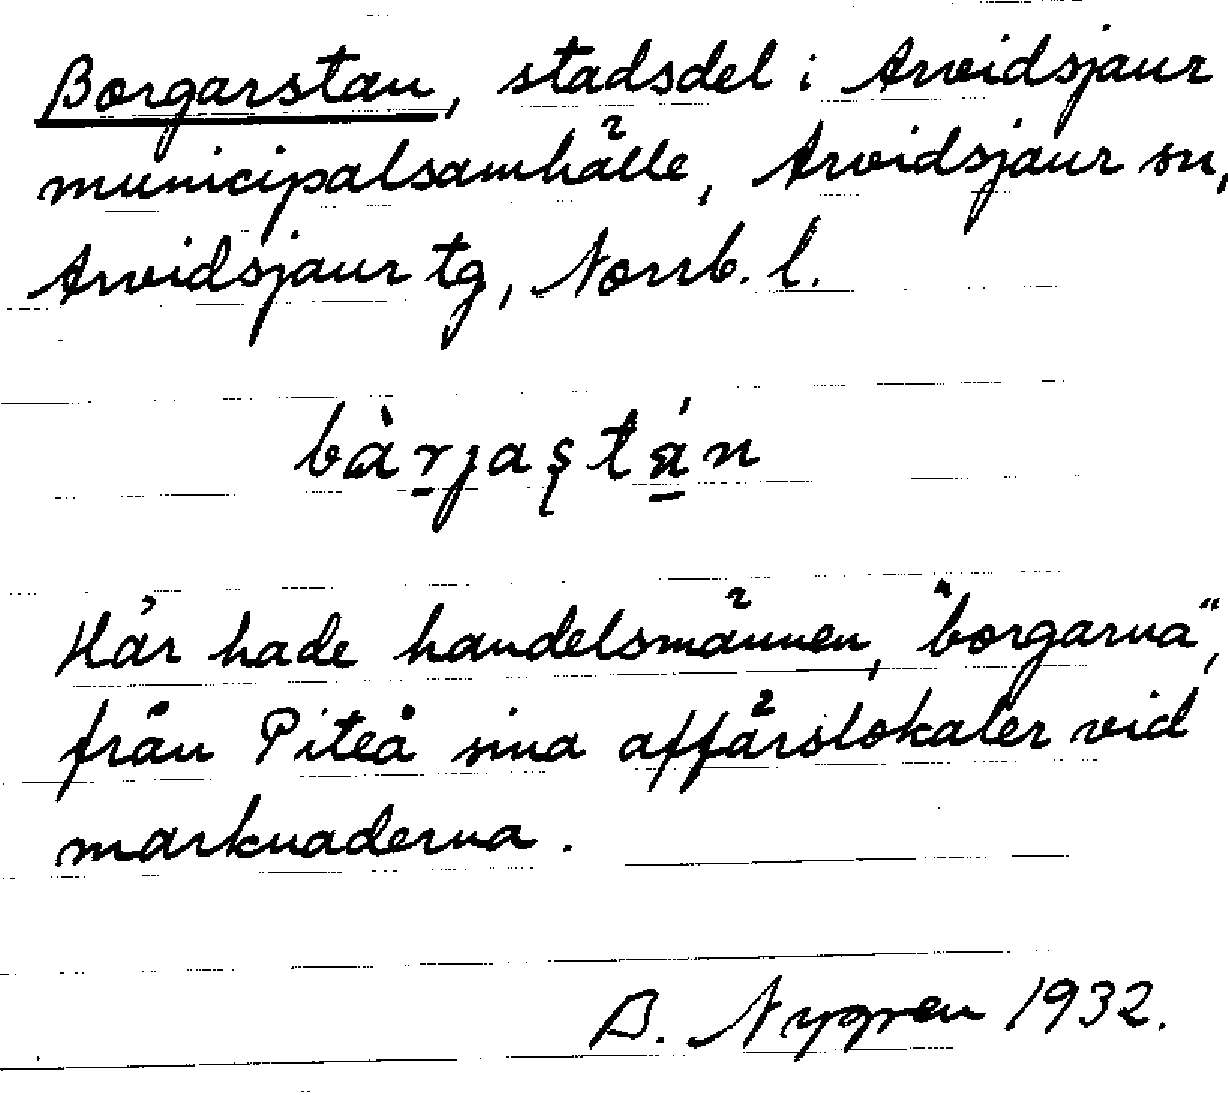 Borgarstan, stadsdel i Arvidsjaur
municipalsamhälle, Arvidsjaur sn,
Arvidsjaur tg, Norrb. l.
bàr̠jaʂtá̠n
Här hade handelsmännen, "borgarna",
från Piteå sina affärslokaler vid
marknaderna.
B. Nygren 1932.